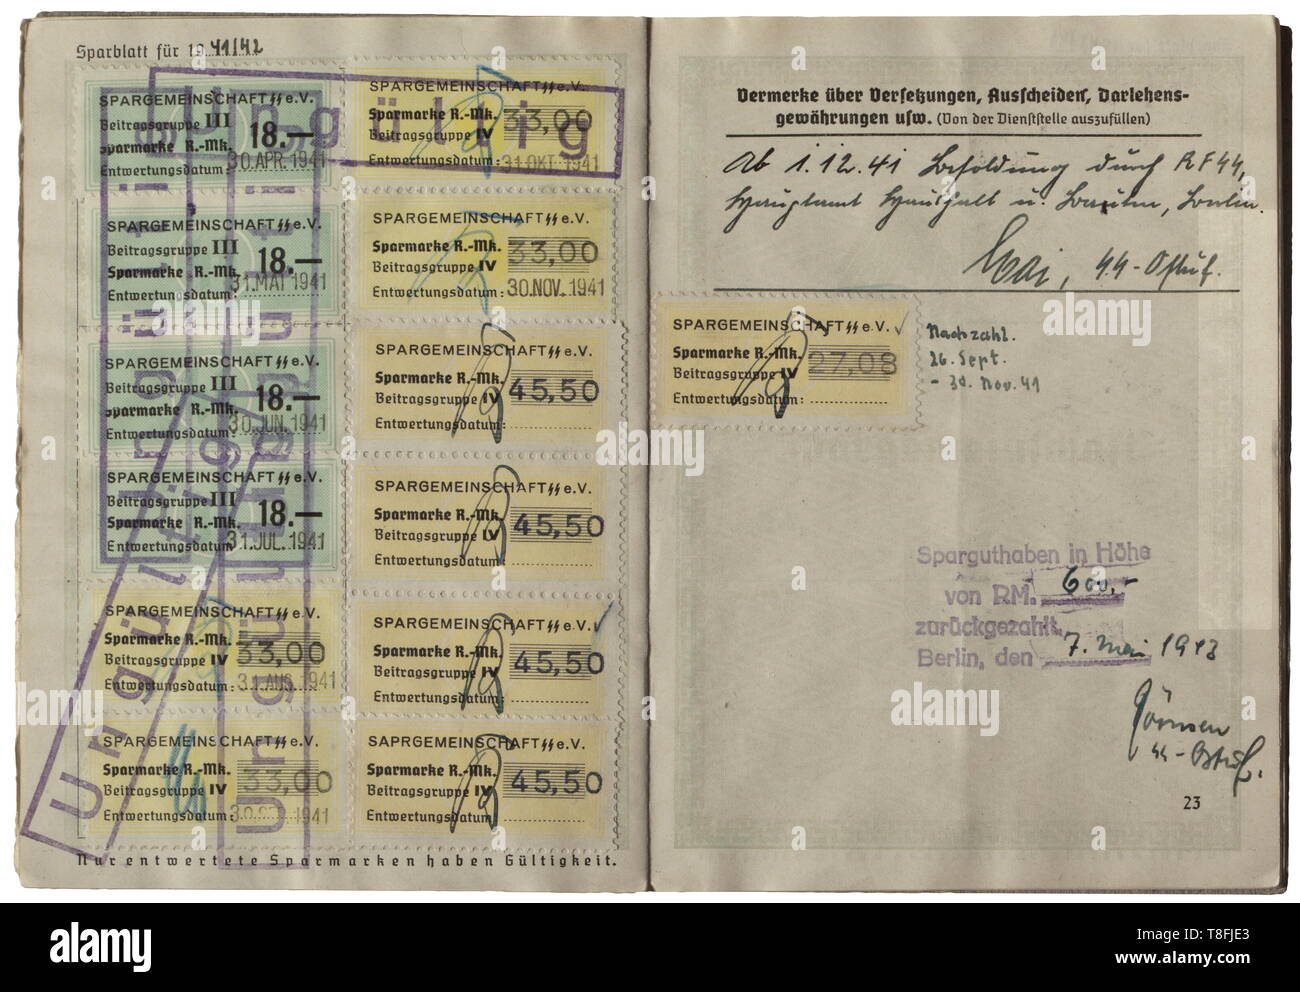 Sparblatt für 1941/42
SPARGEMEINSCHAFT ᛋᛋ e.V.
Beitragsgruppe III 18.—
Sparmarke R.-Mk.
Entwertungsdatum: 30. APR. 1941
SPARGEMEINSCHAFT ᛋᛋ e.V.
Beitragsgruppe III 18.—
Sparmarke R.-Mk.
Entwertungsdatum: 31. MAI 1941
SPARGEMEINSCHAFT ᛋᛋ e.V.
Beitragsgruppe III 18.—
Sparmarke R.-Mk.
Entwertungsdatum: 30. JUN. 1941
SPARGEMEINSCHAFT ᛋᛋ e.V.
Beitragsgruppe III 18.—
Sparmarke R.-Mk.
Entwertungsdatum 31. JUL. 1941
SPARGEMEINSCHAFT ᛋᛋ e.V.
Sparmarke R.-Mk. 33,00
Beitragsgruppe IV
Entwertungsdatum: 31. AUG. 1941
SPARGEMEINSCHAFT ᛋᛋ e.V.
Sparmarke R.-Mk. 33,00
Beitragsgruppe IV
Entwertungsdatum: 30. SEP. 1941
SPARGEMEINSCHAFT ᛋᛋ e.V.
Sparmarke R.-Mk. 33,00
Beitragsgruppe IV
Entwertungsdatum: 31. OKT. 1941
SPARGEMEINSCHAFT ᛋᛋ e.V.
Sparmarke R.-Mk. 33,00
Beitragsgruppe IV
Entwertungsdatum: 30. NOV. 1941
SPARGEMEINSCHAFT ᛋᛋ e.V.
Sparmarke R.-Mk. 45,50
Beitragsgruppe IV
Entwertungsdatum:
SPARGEMEINSCHAFT ᛋᛋ e.V.
Sparmarke R.-Mk. 45,50
Beitragsgruppe IV
Entwertungsdatum:
SPARGEMEINSCHAFT ᛋᛋ e.V.
Sparmarke R.-Mk. 45,50
Beitragsgruppe IV
Entwertungsdatum:
SAPRGEMEINSCHAFT ᛋᛋ e.V.
Sparmarke R.-Mk. 45,50
Beitragsgruppe IV
Entwertungsdatum:
Ungültig
Ungültig
Ungültig
Ungültig
Nur entwertete Sparmarken haben Gültigkeit.
Vermerke über Versetzungen, Ausscheiden, Darlehens-
gewährungen usw. (Von der Dienststelle auszufüllen)
Ab 1.12.41 Besoldung durch RFᛋᛋ,
Hauptamt Haushalt u. Bauten, Berlin.
ᛋᛋ-Ostuf.
SPARGEMEINSCHAFT ᛋᛋ e.V.
Sparmarke R.-Mk. 27,08
Beitragsgruppe IV
Entwertungsdatum:
Nachzahl.
26. Sept.
- 30. Nov. 41
Sparguthaben in Höhe
von RM. 600,-
zurückgezahlt.
Berlin, den 7. Mai 1943
ᛋᛋ-Ostuf.
23
alamy
Image ID: T8FJE3
www.alamy.com